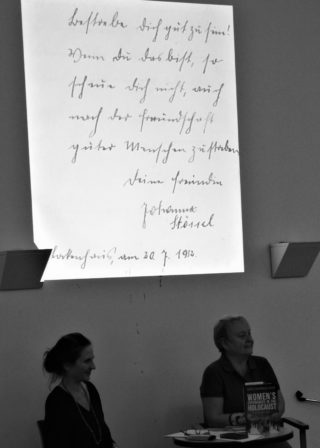 Bestrebe dich gut zu sein!
Wenn du das bist, so
scheue dich nicht, auch
nach der Freundschaft
guter Menschen zu streben
Deine Freundin
Johanna
Stössel
Lockenhaus, am 20. 7.
WOMEN'S
EXPERIENCES IN THE
HOLOCAUST